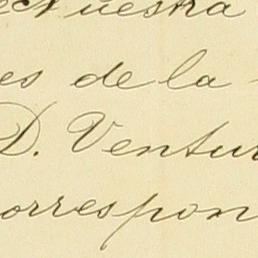 Nuestra
es de la
D. Ventur
orrespon